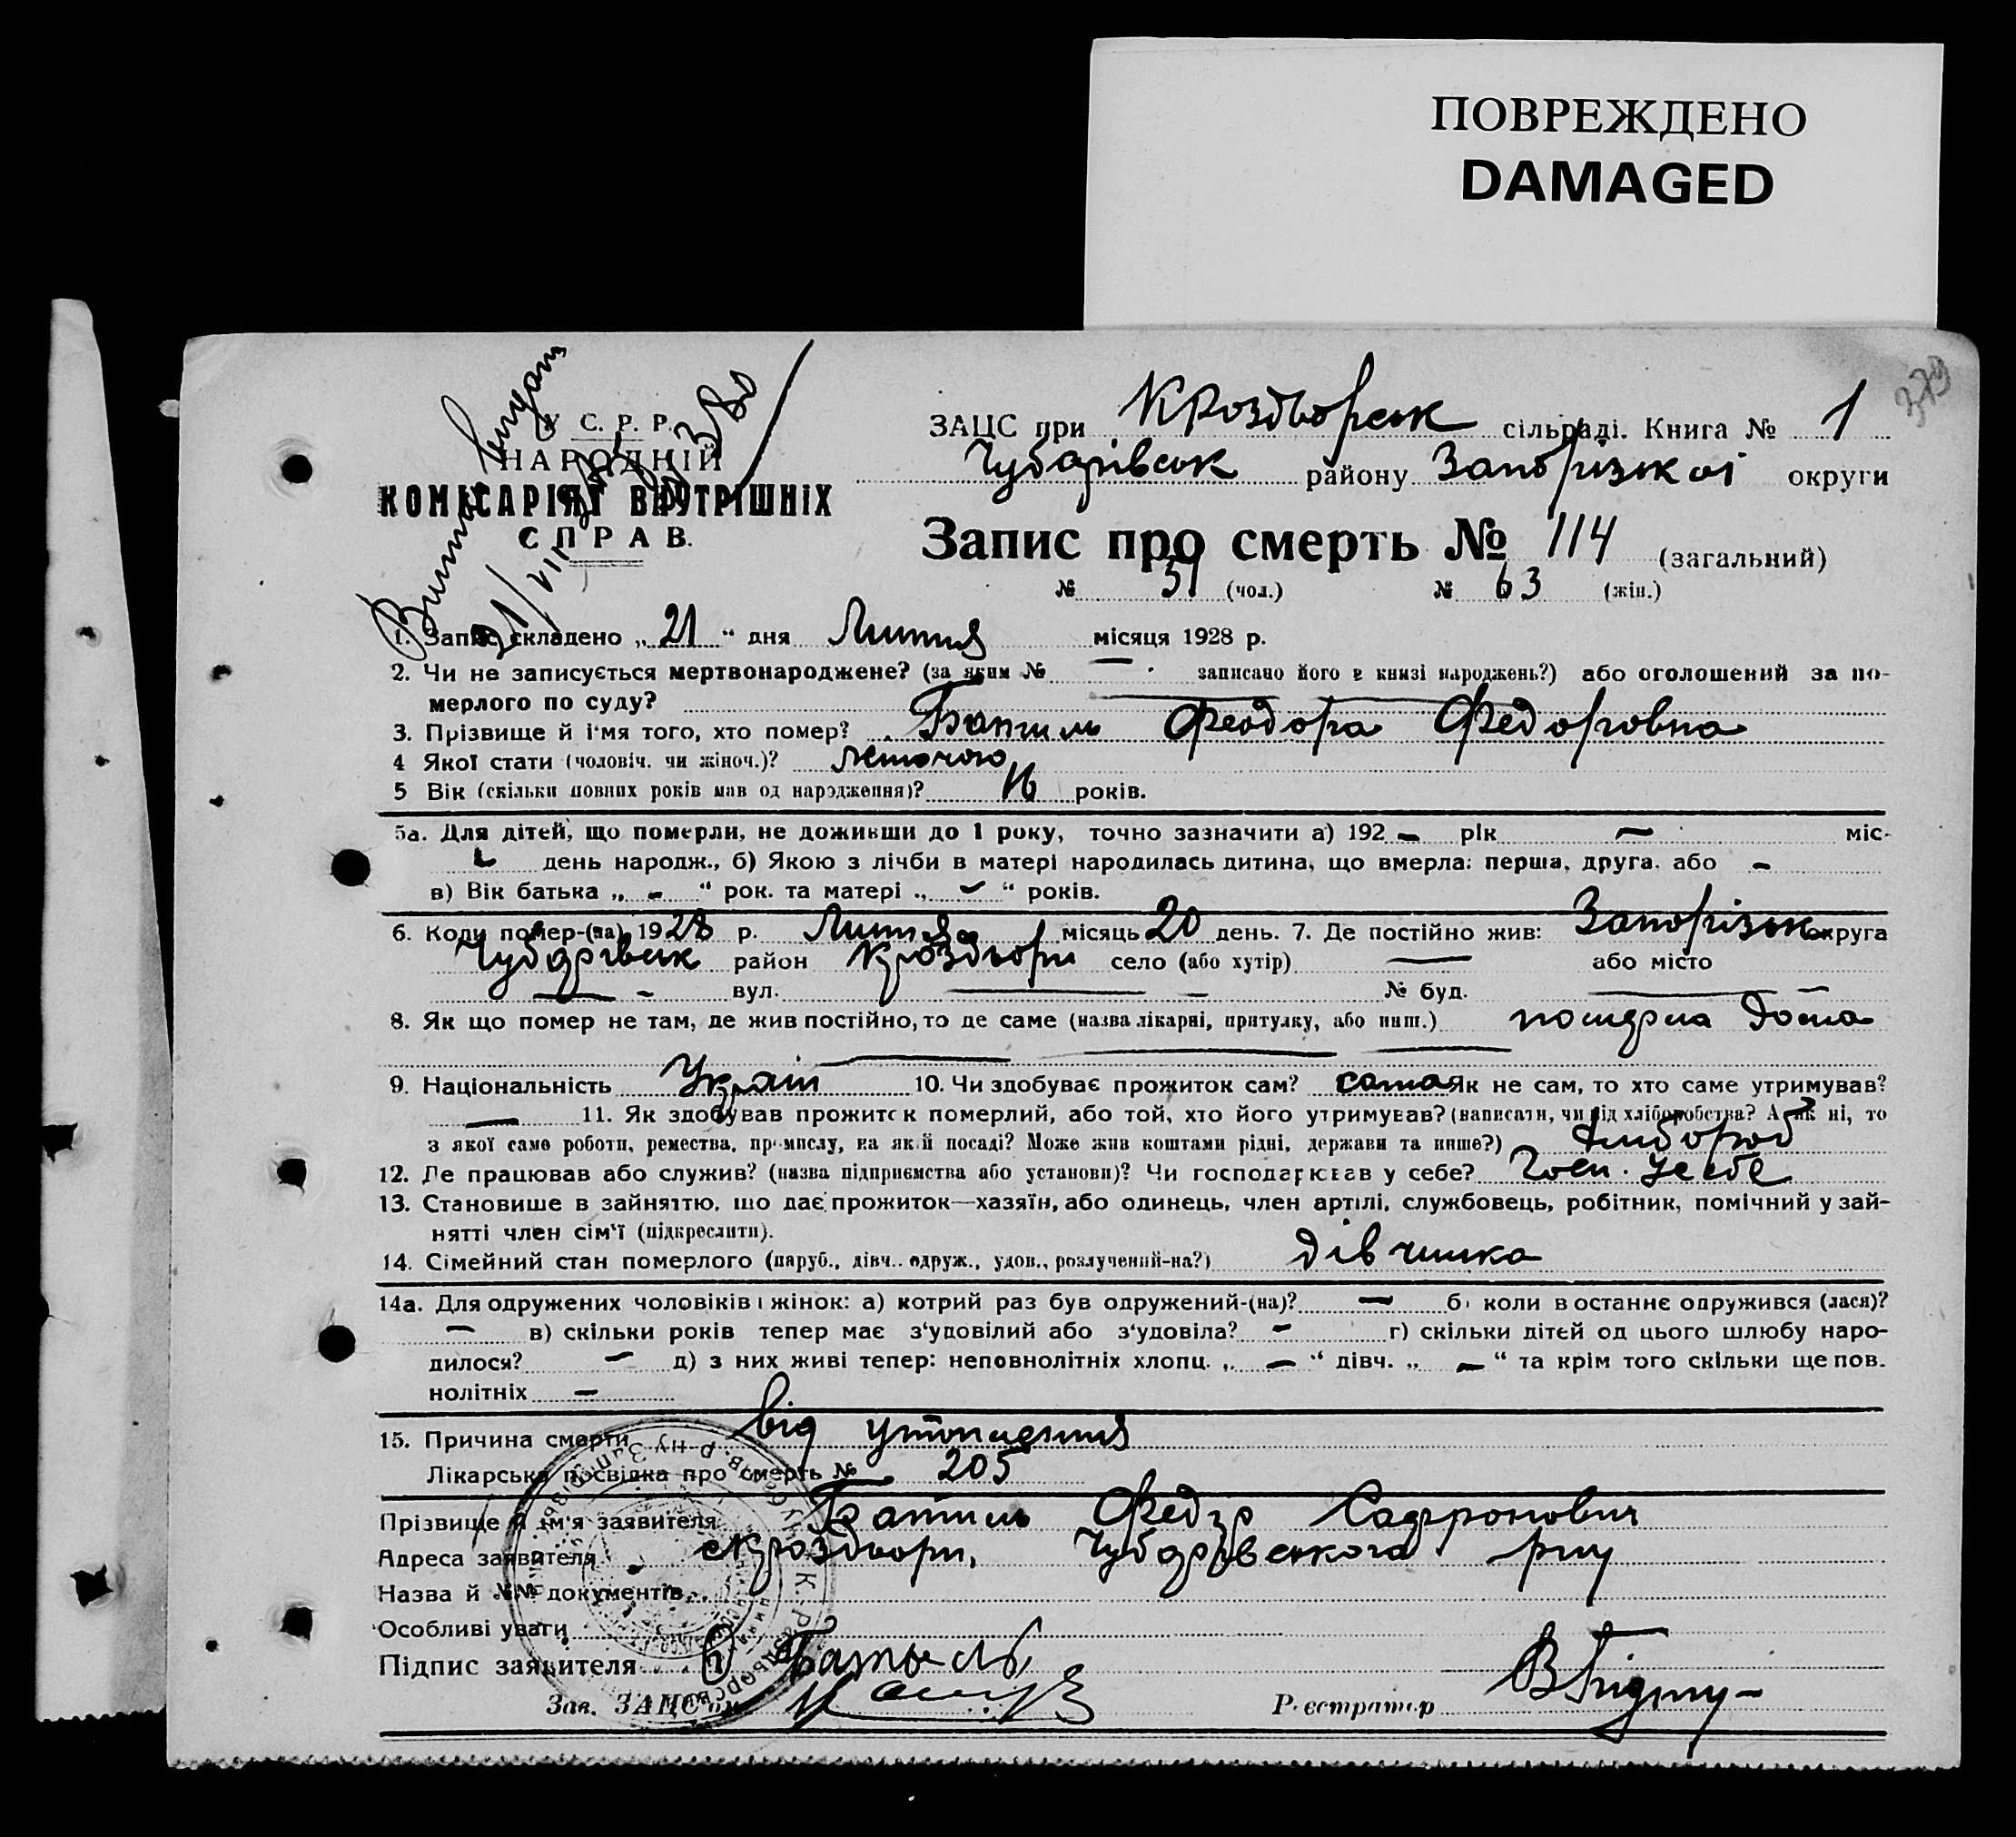 ПОВРЕЖДЕНО
DAMAGED
379
У. С. Р. Р.
НАРОДНІЙ
КОМІСАРІЯТ ВНУТРІШНІХ
СПРАВ.
ЗАЦС при Кроздворськ сільраді. Книга № 1
Чубарівськ району Запорізької округи
Запис про смерть № 114 (загальний)
№ 51 (чол.) № 63 (жін.)
1. Запис складено „ 21 “ дня Липня місяця 1928 р.
2. Чи не записується мертвонароджене? (за яким № — записано його в книзі народжень?) або оголошений за по-
мерлого по суду?
3. Прізвище й ім'я того, хто помер? Батиль Феодора Федоровна
4 Якої статі (чоловіч. чи жіноч.)? жіночого
5 Вік (скільки повних років мав од народження)? 16 років.
5а. Для дітей, що померли, не доживши до 1 року, точно зазначити а) 192 – рік – міс-
день народж., б) Якою з лічби в матері народилась дитина, що вмерла: перша, друга. або –
в) Вік батька „ – “ рок. та матері „ – “ років.
6. Коли помер-(ла) 1928 р. Липня місяць 20 день. 7. Де постійно жив: Запорізьк округа
Чубарівськ район Кроздори село (або хутір) — або місто
— вул. — № буд. —
8. Як що помер не там, де жив постійно, то де саме (назва лікарні, притулку, або инш.) померла дома
9. Національність Україн 10. Чи здобував прожиток сам? сама Як не сам, то хто саме утримував?
— 11. Як здобував прожиток померлий, або той, хто його утримував? (написати, чи від хліборобства? А як ні, то
з якої саме роботи, ремества, промислу, на якій посаді? Може жив коштами рідні, держави та инше?) хлібороб
12. Де працював або служив? (назва підприємства або установи)? Чи господарював у себе? Госп. у себе
13. Становище в зайняттю, що дає прожиток—хазяїн, або одинець, член артілі, службовець, робітник, помічний у зай-
нятті член сім'ї (підкреслити).
14. Сімейний стан померлого (паруб., дівч.. одруж., удов., розлучений-на?) дівчинка
14а. Для одружених чоловіків і жінок: а) котрий раз був одружений-(на)? – б) коли в останнє одружився (лася)?
– в) скільки років тепер має з'удовілий або з'удовіла? – г) скільки дітей од цього шлюбу наро-
дилося? – д) з них живі тепер: неповнолітніх хлопц. „ – “ дівч. „ – “ та крім того скільки ще пов.
нолітніх –
15. Причина смерти від утоплення
Лікарська посвідка про смерть № 205
Прізвище й ім'я заявителя Батиль Федір Сафронович
Адреса заявителя с Кроздори, Чубарівського р-ну
Назва й №№ документів
Особливі уваги
Підпис заявителя Батыль
Зав. ЗАЦС'ом
Реєстратор